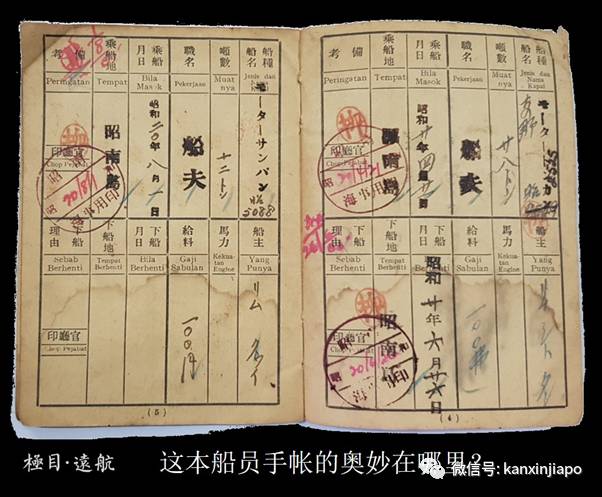 船種
船名
Jenis dan
Nama
Kapal
噸數
Muat
nya
職名
Pekerjaan
乘船
月日
Bila
Masok
乘船地
Tempat
備考
Peringatan
友野
モーターサンパン
廿八トン
船夫
昭南島
印廳官
Chop Pejabat
海事用印
船主
Yang
Punya
馬力
Kekua-
tan
Engine
給料
Gaji
Sabulan
下船
月日
Bila
Berhenti
下船地
Tempat
Berhenti
下船
理由
Sebab
Berhenti
昭和廿年六月廿六日
昭南島
20/6/26
印廳官
Chop Pejabat
(4)
船種
船名
Jenis dan
Nama
Kapal
噸數
Muat
nya
職名
Pekerjaan
乘船
月日
Bila
Masok
乘船地
Tempat
備考
Peringatan
モーターサンパン
昭
5088
十二トン
船夫
昭和二〇年八月一日
昭南島
印廳官
Chop Pejabat
海事用印
船主
Yang
Punya
馬力
Kekua-
tan
Engine
給料
Gaji
Sabulan
下船
月日
Bila
Berhenti
下船地
Tempat
Berhenti
下船
理由
Sebab
Berhenti
一〇〇円
印廳官
Chop Pejabat
(5)
極目·遠航
这本船员手帐的奥妙在哪里?
微信号: kanxinjiapo